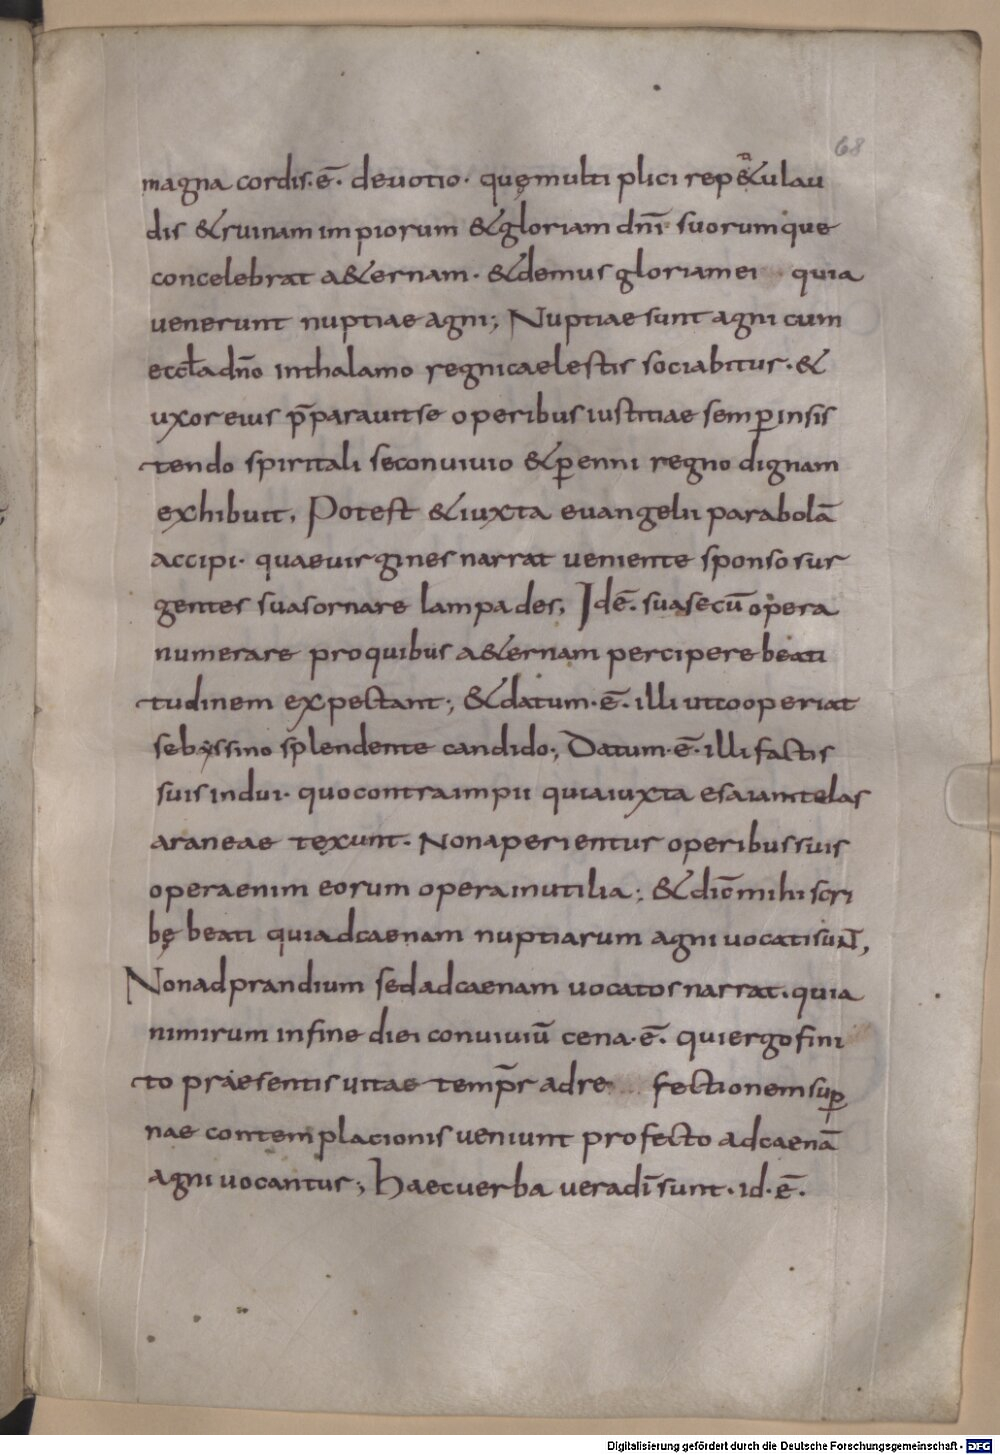 68
magna cordis·ē· deuotio· quę multi plici rep&ulau
dis & ruinam impiorum & gloriam dnī suorumque
concelebrat a&ernam· & demus gloriam ei quia
uenerunt nuptiae agni; Nuptiae sunt agni cum
eccła dn̄o in thalamo regni caelestis sociabitur· &
uxor eius p̄parauit se operibus iustitiae semꝑ insis
tendo spiritali se conuiuio & ꝑenni regno dignam
exhibuit, Potest & iuxta euangelii parabolā
accipi· quae uirgines narrat ueniente sponso sur
gentes suas ornare lampades, Idē· sua secū opera
numerare pro quibus a&ernam percipere beati
tudinem expectant; & datum·ē· illi ut cooperiat
se byssino splendente candido; Datum·ē· illi factis
suis indui· quo contra impii quia iuxta esaiam telas
araneae texunt· Non aperientur operibus suis
opera enim eorum opera inutilia; & dic̄ mihi scri
bę beati qui ad caenam nuptiarum agni uocati sun̄t,
Non ad prandium sed ad caenam uocatos narrat· quia
nimirum in fine diei conuiuiū cena·ē· qui ergo fini
to praesentis uitae temp̄r ad re fectionem suꝑ
nae contemplacionis ueniunt profecto ad caenā
agni uocantur; Haec uerba uera dī sunt· id·ē·
Digitalisierung gefördert durch die Deutsche Forschungsgemeinschaft - DFG